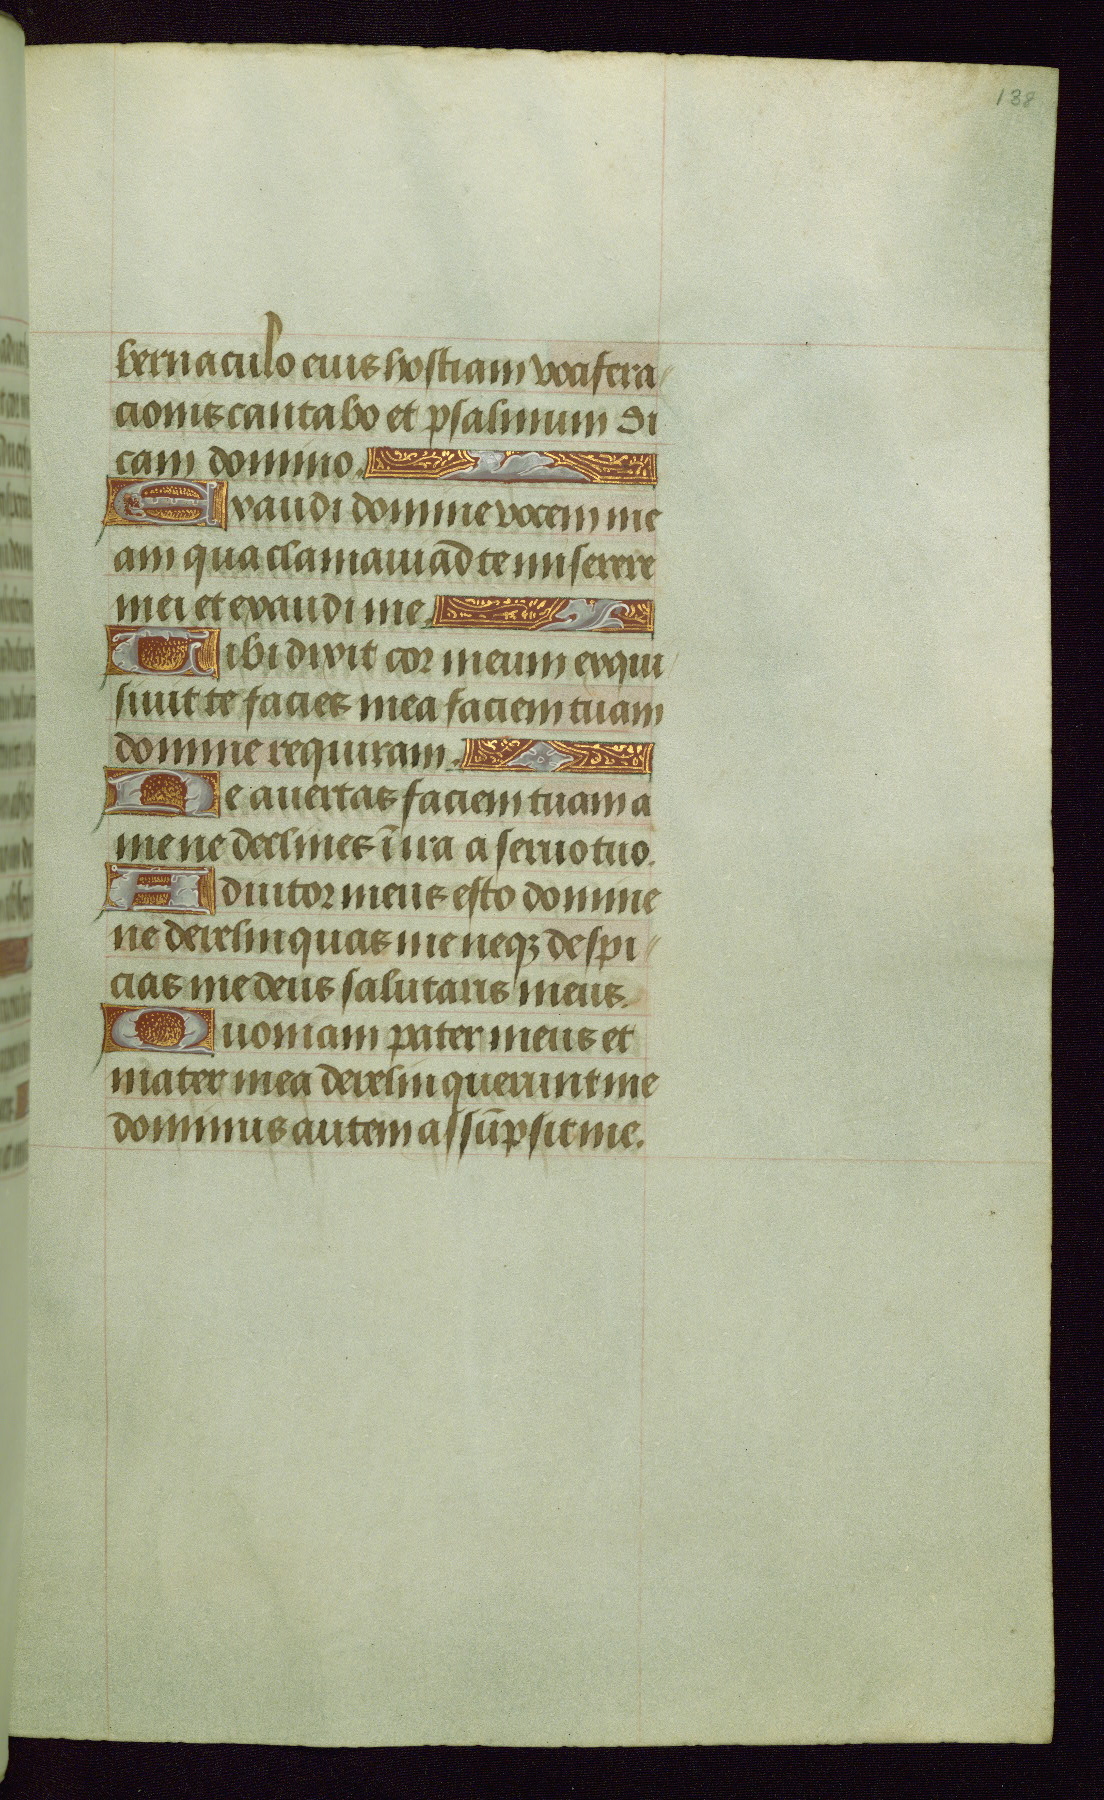 138
bernaculo eius hostiam vocifera
cionis cantabo et psalmum di
cam domino.
Exaudi domine vocem me
am qua clamaui ad te miserere
mei et exaudi me.
Tibi dixit cor meum exqui
siuit te facies mea faciem tuam
domine requiram.
Ne auertas faciem tuam a
me ne declines ī ira a seruo tuo.
Adiutor meus esto domine
ne derelinquas me neqȝ despi
cias me deus salutaris meus.
Quoniam pater meus et
mater mea derelinquerunt me
dominus autem assūpsit me.